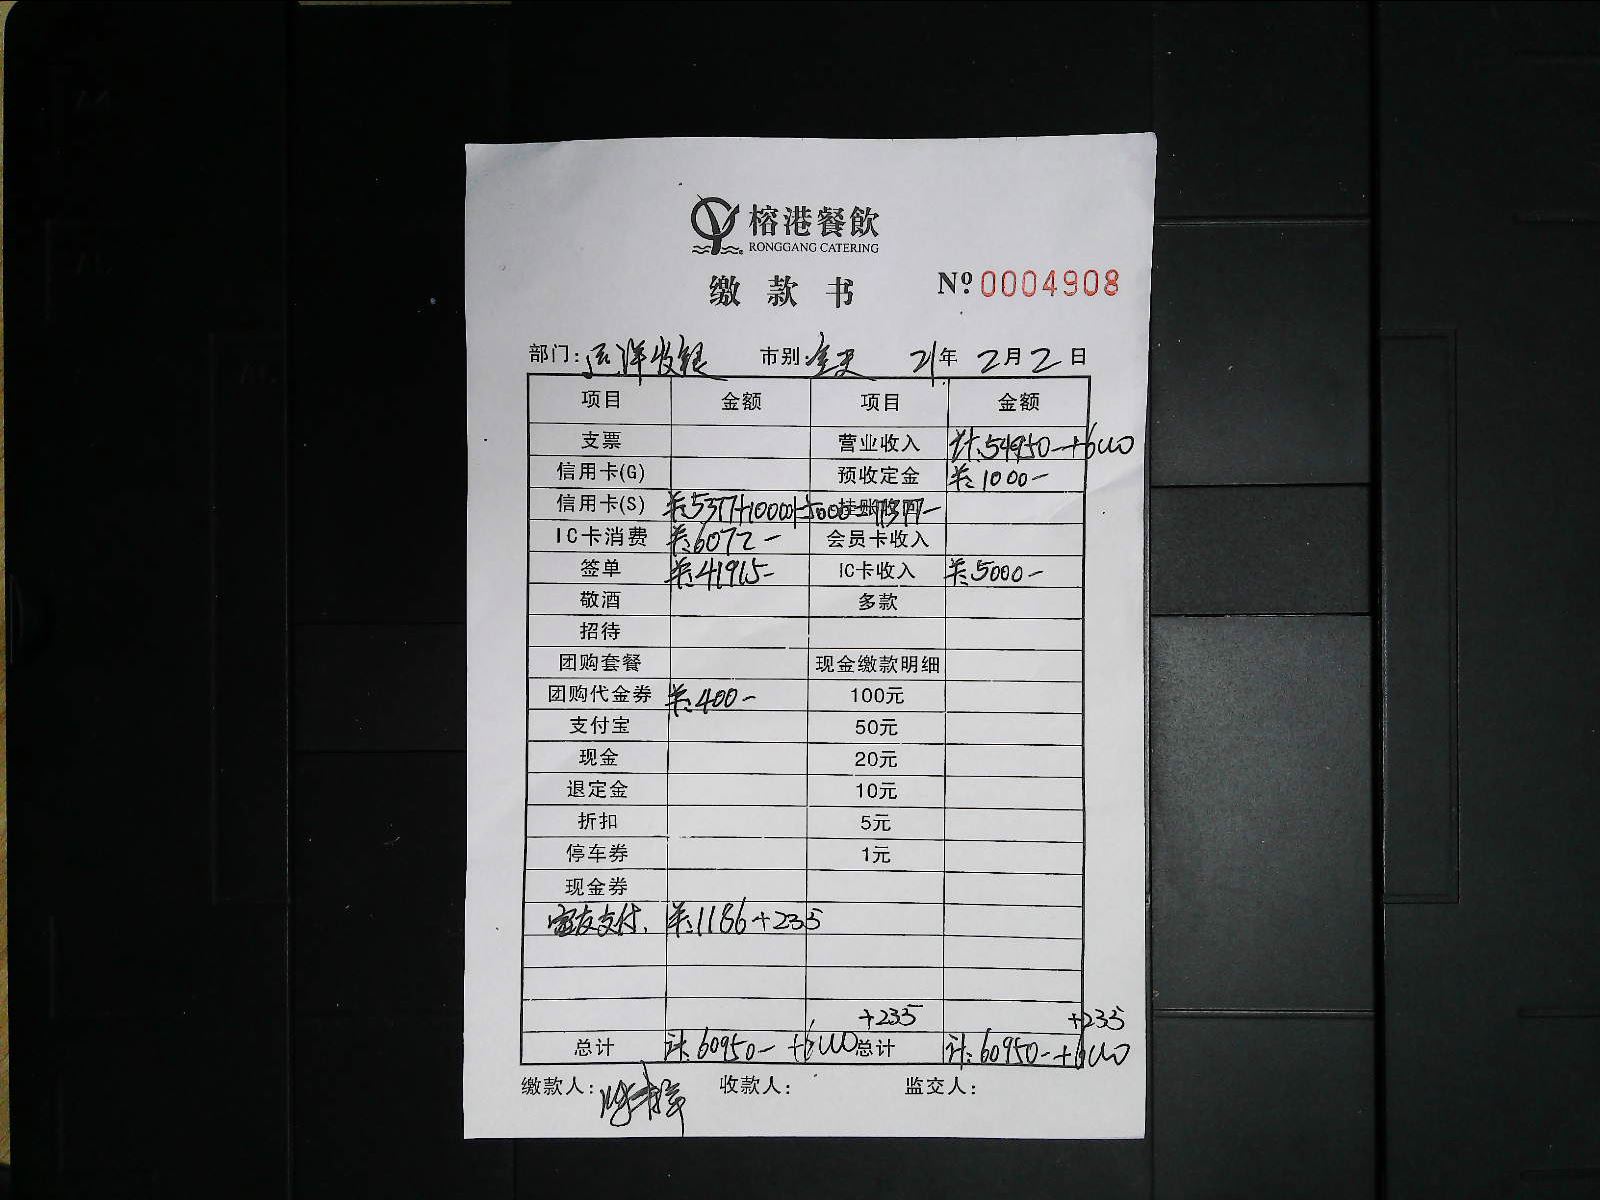 榕港餐飲
RONGGANG CATERING
缴款书 Nº 0004908
部门: 远洋收银 市别: 全天 21年 2月2日
项目 金额 项目 金额
支票 营业收入 计:54950-+600
信用卡(G) 预收定金 羊:1000-
信用卡(S) 羊:5377+10000+ 挂账收回
IC卡消费 羊:6072- 会员卡收入
签单 羊:41915- IC卡收入 羊:5000-
敬酒 多款
招待
团购套餐 现金缴款明细
团购代金券 羊:400- 100元
支付宝 50元
现金 20元
退定金 10元
折扣 5元
停车券 1元
现金券
支付. 羊:1186+235
+235 +235
总计 计:60950-+600 总计 计:60950-+600
缴款人: 收款人: 监交人: